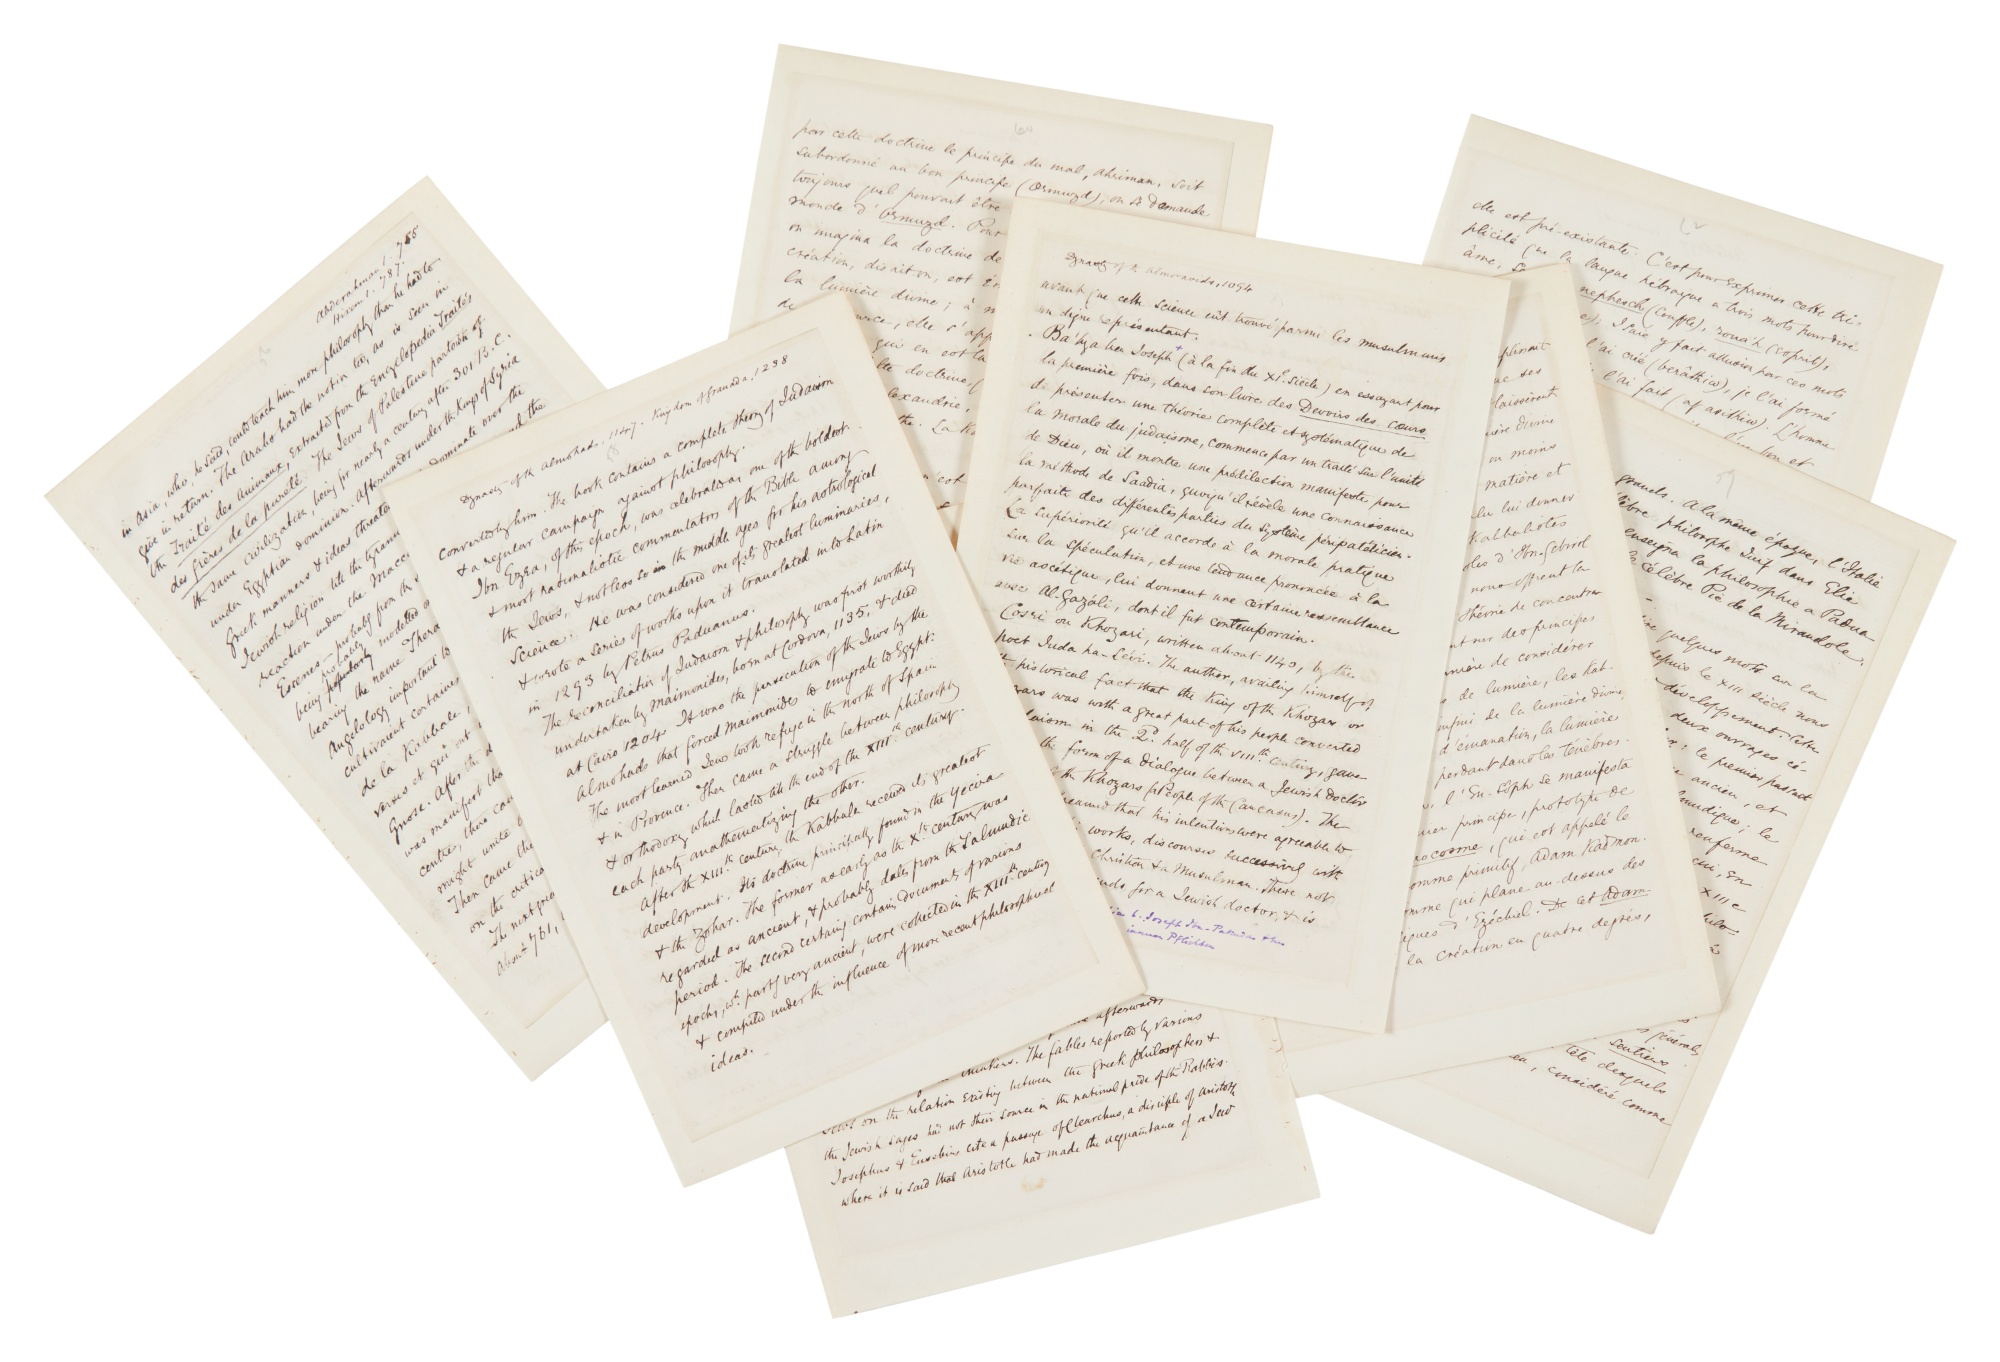 Abderrahman 1. 755
Hixem 1. 787.
in Asia, who, he said, could teach him more philosophy than he had to
give in return. The Arabs had the notion too, as is seen in
the Traité des Animaux, extracted from the Encyclopedia Traités
des frères de la pureté. The Jews of Palestine partook of
the same civilization, being for nearly a century after 301 B.C.
under Egyptian dominion. Afterwards under the Kings of Syria
Greek manners & ideas threate
dominate over the
Jewish religion till the tyrann
and the
reaction under the Macc
Essenes – probably from the
being probably modelled
bearing the name Thera
Angelology important to
cultivaient certaines
de la Kabbale,
verses et qui ont
Gnose. After the
was manifest tha
centre, there cam
might unite
Then came the
on the critica
The next grea
about 761,
64
pour cette doctrine le principe du mal, Ahriman, soit
subordonné au bon principe (Ormuzd), on se demande
toujours quel pouvait être
monde d'Ormuzd. Pour
on imagina la doctrine de
création, disait on, est
la lumière divine; à
de
source, elle s'app
qui en est la
tte doctrine,
lexandrie,
the. La Ka
c'ot
Dynasty of the Almohads. 1147. Kingdom of Granada, 1238
converted by him. The book contains a complete theory of Judaism
& a regular campaign against philosophy.
Ibn Ezra, of this epoch, was celebrated as one of the boldest
& most rationalistic commentators of the Bible among
the Jews, & not less so in the middle ages for his astrological
science. He was considered one of its greatest luminaries,
& wrote a series of works upon it translated into Latin
in 1293 by Petrus Paduanus.
The reconciliation of Judaism & philosophy was first worthily
undertaken by Maimonides, born at Cordova, 1135, & died
at Cairo 1204. It was the persecution of the Jews by the
Almohads that forced Maimonides to emigrate to Egypt:
The most learned Jews took refuge in the north of Spain
& in Provence. Then came a struggle between philosophy
& orthodoxy which lasted till the end of the XIIIth century.
each party anathematizing the other.
After the XIIIth century the Kabbala received its greatest
development. Its doctrine principally found in the Yecira
& the Zohar. The former as early as the Xth century was
regarded as ancient, & probably dates from the Talmudic
period. The second certainly contains documents of various
epochs, wh. partly very ancient, were collected in the XIIIth century
& compiled under the influence of more recent philosophical
ideas.
Dynasty of the Almoravids, 1094
avant que cette science eût trouvé parmi les musulmans
un digne représentant.
Ba'hya ben Joseph+ (à la fin du XIe siècle) en essayant pour
la première fois, dans son livre des Devoirs des cœurs
de présenter une théorie complète et systématique de
la morale du judaïsme, commence par un traité sur l'unité
de Dieu, où il montre une prédilection manifeste pour
la méthode de Saadia, quoiqu'il révèle une connaissance
parfaite des différentes parties du système péripatéticien.
La supériorité qu'il accorde à la morale pratique
sur la spéculation, et une tendance prononcée à la
vie ascétique, lui donnent une certaine ressemblance
avec Al-Gazâli, dont il fut contemporain.
Cosri ou Khozari, written about 1140, by the
poet Juda ha-Lévi. The author, availing himself of
historical fact that the King of the Khozars or
zars was with a great part of his people converted
daism in the 2d half of the VIIIth century, gave
the form of a dialogue between a Jewish doctor
the Khozars (people of the Caucasus). The
reamed that his intentions were agreeable to
works, discourses successively with
Christian & a Musulman. These not
nds for a Jewish doctor, & is
elle est pré-existante. C'est pour exprimer cette tri-
plicité que la langue hébraique a trois mots pour dire
âme,
nephesch (souffle), roua'h (esprit),
Isaïe y fait allusion par ces mots
l'ai créé (berâthiw), je l'ai formé
l'ai fait (af asithiw). L'homme
plissait
que ses
laissèrent
ière divine
ou moins
matière et
lui donner
Kabbalistes
oles d'Ibn-Gebirol
nous offrent la
théorie de concentra
nt sur des principes
nière de considérer
de lumière, les Kab.
de la lumière divine,
d'émanation, la lumière
perdant dans les ténèbres.
l'En-Sôph se manifesta
principe, prototype de
ocosme, qui est appelé le
omme primitif, Adam Kadmon.
omme qui plane au-dessus des
iques d'Ezéchiel. De cet Adam-
la création en quatre degrés,
grands. A la même époque, l'Italie
lèbre philosophe Juif dans Elie
enseigna la philosophie a Padua
le célèbre Pic de la Mirandole.
quelques mots sur la
depuis le XIII siècle nous
développement. Cette
deux ouvrages
le premier passait
ancien, et
lmudique; le
renferme
qui, en
XIIIe
générale
sentiers
tête desquels
considéré comme
afterwards
The fables reported by various
on the relation existing between the Greek philosophers &
the Jewish sages had not their source in the national pride of the Rabbis.
Josephus & Eusebius cite a passage of Clearchus, a disciple of Aristotle
where it is said that Aristotle had made the acquaintance of a Jew